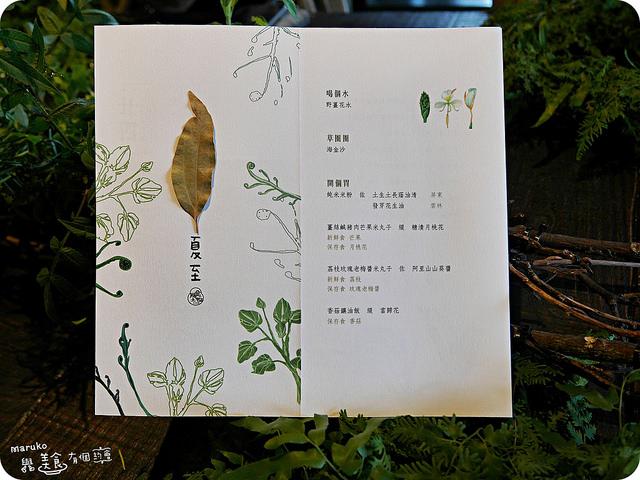 夏至
喝個水
野薑花水
草圈圈
海金沙
開個胃
純米米粉 佐 土生土長菇油清 屏東
發芽花生油 雲林
薑絲鹹豬肉芒果米丸子 綴 糖漬月桃花
新鮮食 芒果
保存食 月桃花
荔枝玫瑰老梅醬米丸子 佐 阿里山山葵醬
新鮮食 荔枝
保存食 玫瑰老梅醬
香菇釀油飯 綴 當歸花
保存食 香菇
maruko
與美食有個約會